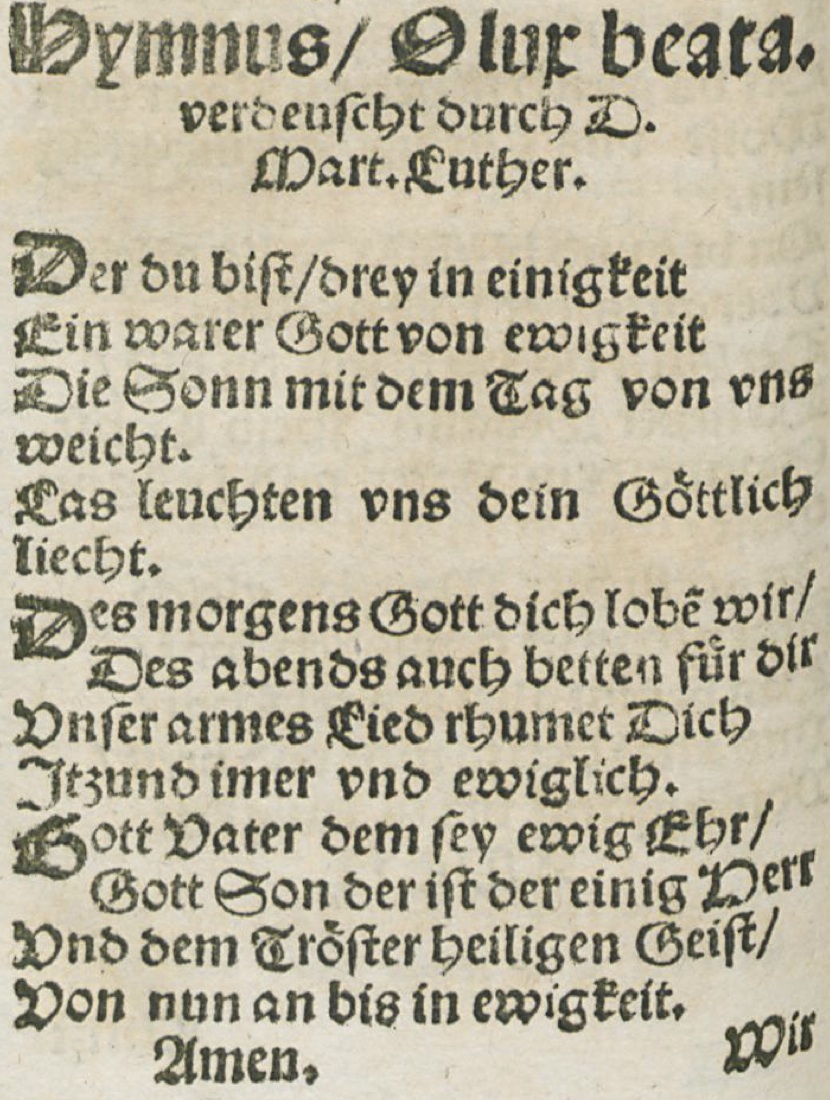 Hymnus/ O lux beata.
verdeuscht durch D.
Mart. Luther.
Der du bist/drey in einigkeit
Ein warer Gott von ewigkeit
Die Sonn mit dem Tag von vns
weicht.
Las leuchten vns dein Göttlich
liecht.
Des morgens Gott dich lobē wir/
Des abends auch betten für dir
Vnser armes Lied rhumet Dich
Jtzund imer vnd ewiglich.
Gott Vater dem sey ewig Ehr/
Gott Son der ist der einig Herr
Vnd dem Tröster heiligen Geist/
Von nun an bis in ewigkeit.
Amen.
Wir